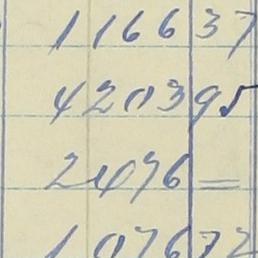 116637
420395
2476=
107672